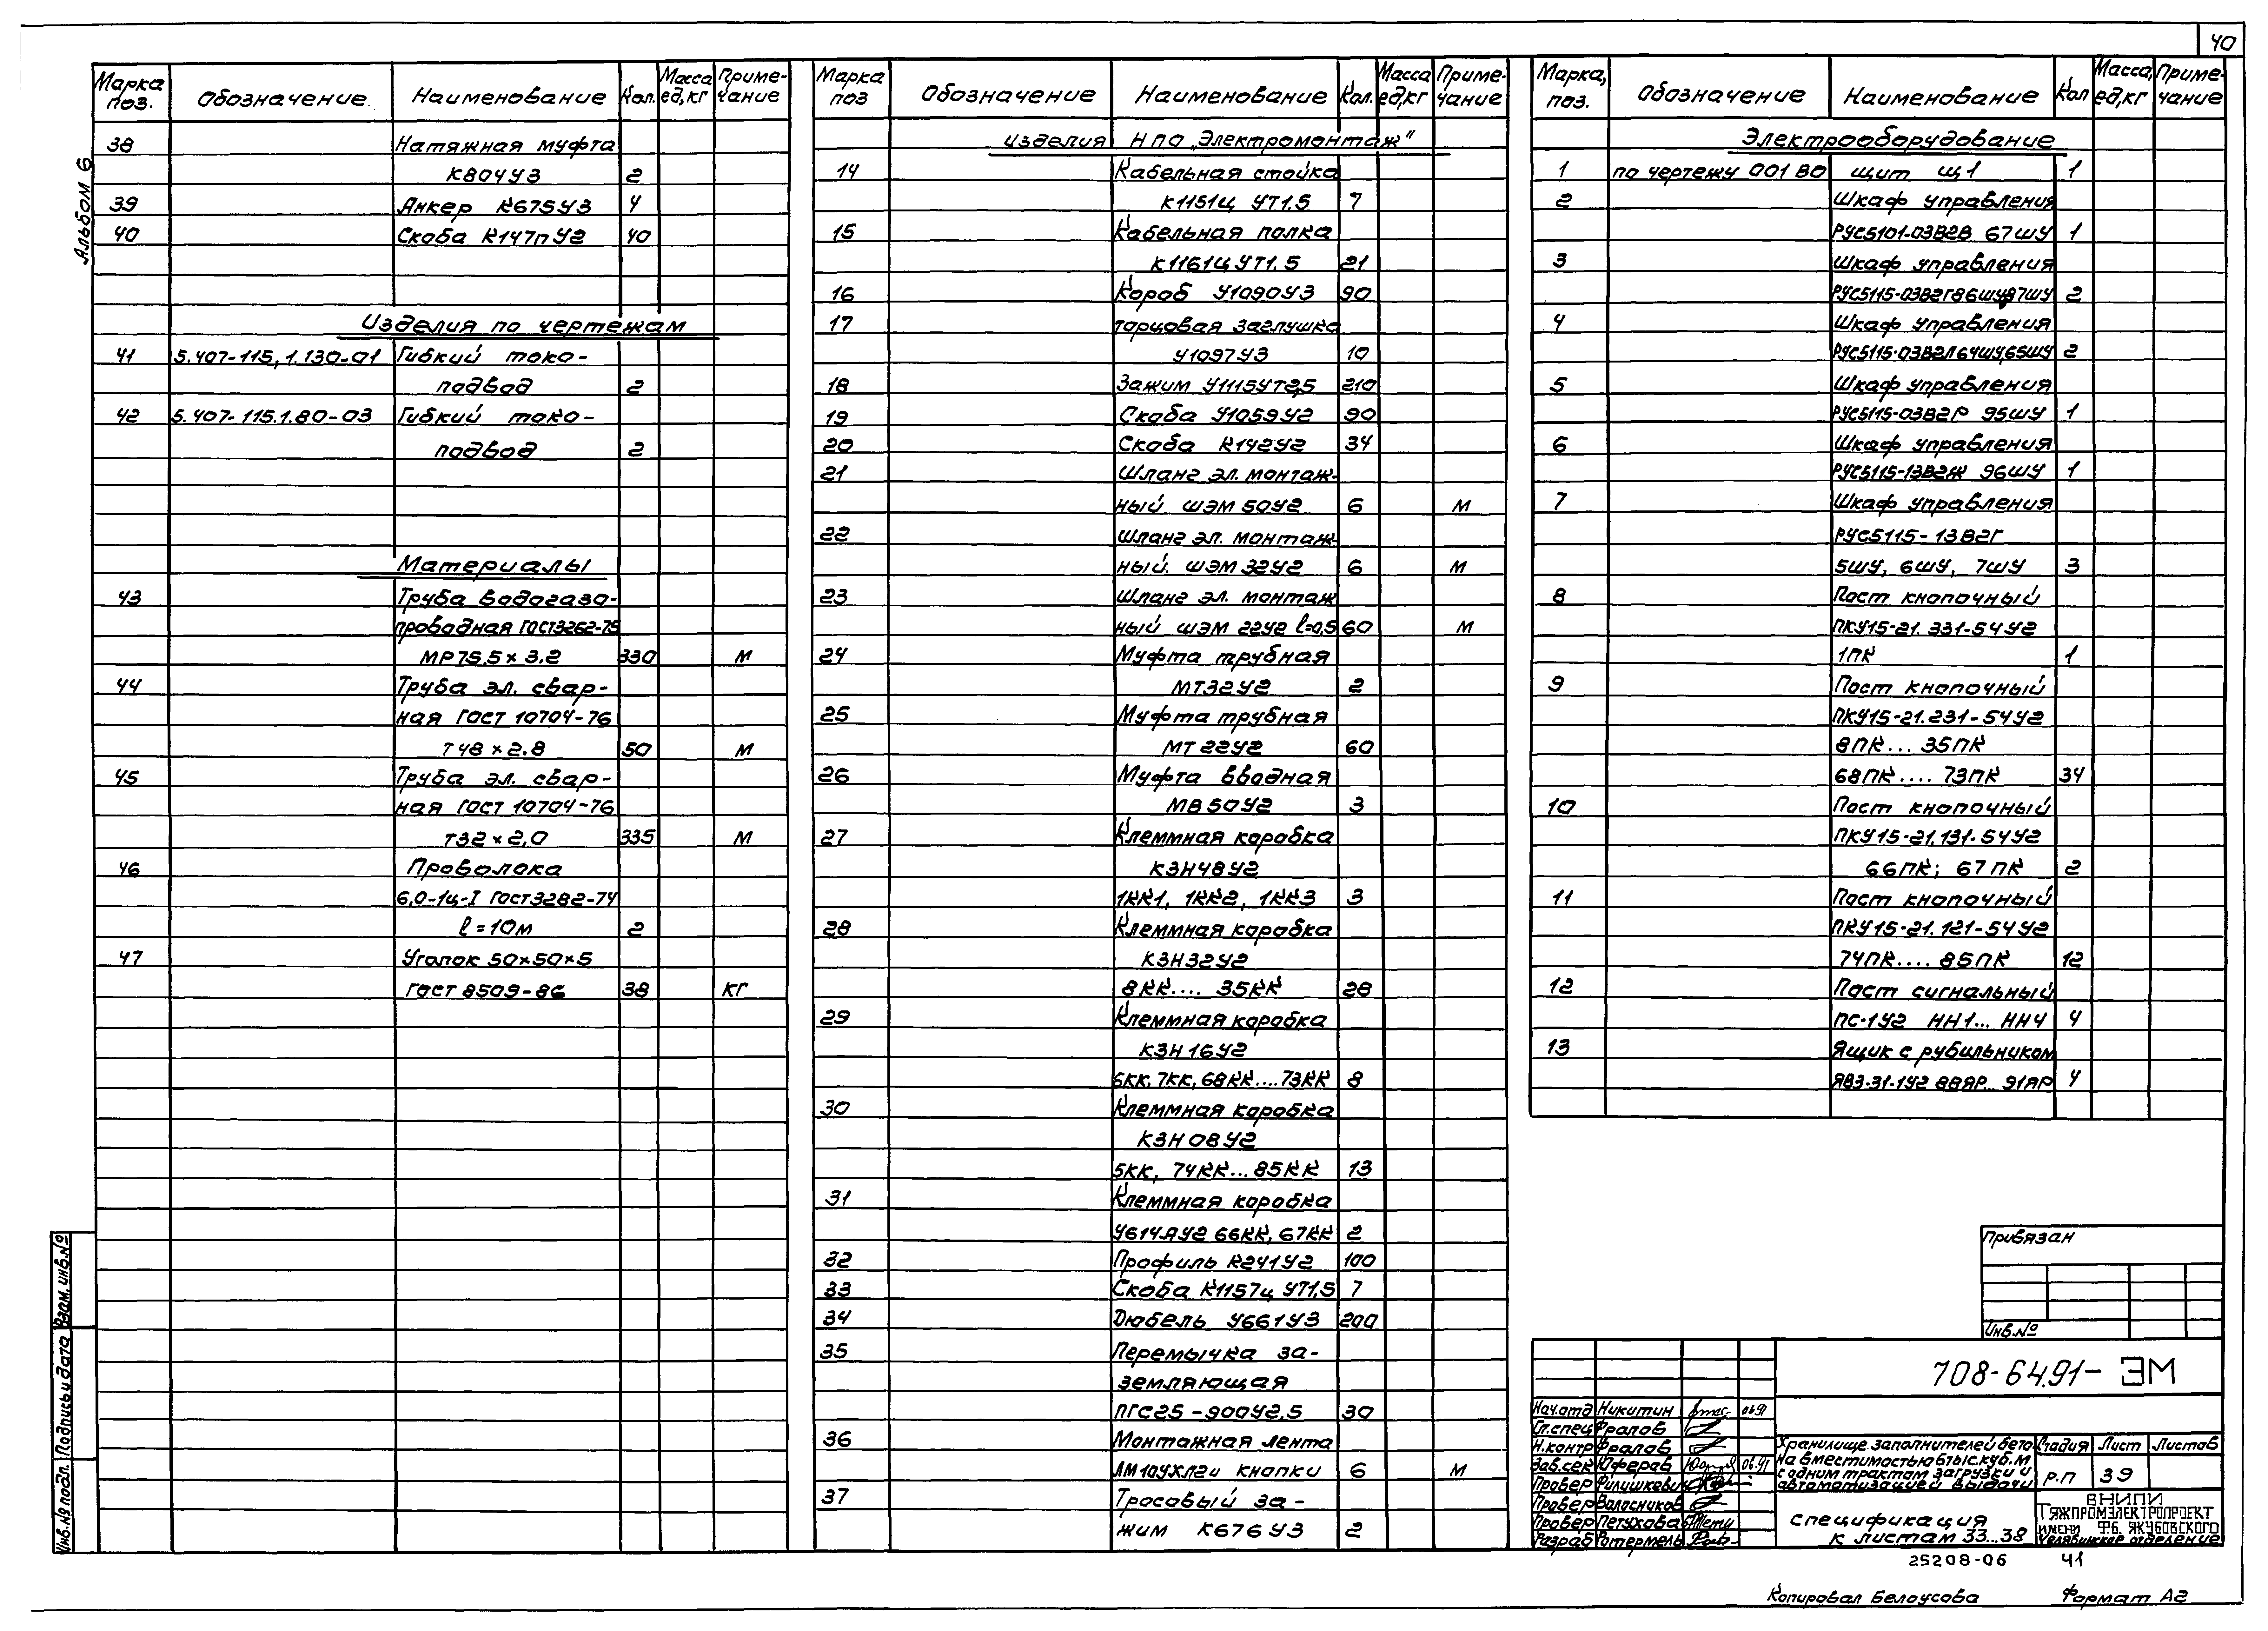 40
Альбом 6
Марка поз. Обозначение Наименование Кол. Масса ед,кг Приме-чание
38 Натяжная муфта
К804У3 2
39 Анкер К675У3 4
40 Скоба К147пУ2 40
Изделия по чертежам
41 5.407-115,1.130-01 Гибкий токо-
подвод 2
42 5.407-115.1.80-03 Гибкий токо-
подвод 2
Материалы
43 Труба водогазо-
проводная ГОСТ3262-75
МР75.5×3.2 330 м
44 Труба эл. свар-
ная ГОСТ 10704-76
Т48×2.8 50 м
45 Труба эл. свар-
ная ГОСТ 10704-76
Т32×2,0 335 м
46 Проволока
6,0-1ц-I ГОСТ3282-74
ℓ=10м 2
47 Уголок 50×50×5
ГОСТ 8509-86 38 кг
Марка поз Обозначение Наименование Кол. Масса ед,кг Приме-чание
Изделия НПО „Электромонтаж"
14 Кабельная стойка
К1151ц УТ1,5 7
15 Кабельная полка
К1161ц УТ1.5 21
16 Короб У1090У3 90
17 Торцовая заглушка
У1097У3 10
18 Зажим У1115УТ2,5 210
19 Скоба У1059У2 90
20 Скоба К142У2 34
21 Шланг эл. монтаж-
ный ШЭМ 50У2 6 м
22 Шланг эл. монтаж-
ный. ШЭМ 32У2 6 м
23 Шланг эл. монтаж
ный ШЭМ 22У2 ℓ=0,5 60 м
24 Муфта трубная
МТ32У2 2
25 Муфта трубная
МТ 22У2 60
26 Муфта вводная
МВ50У2 3
27 Клеммная коробка
КЗН48У2
1КК1, 1КК2, 1КК3 3
28 Клеммная коробка
КЗН32У2
8КК.... 35КК 28
29 Клеммная коробка
КЗН16У2
6КК, 7КК, 68КК....73КК 8
30 Клеммная коробка
КЗН08У2
5КК, 74КК...85КК 13
31 Клеммная коробка
У614АУ2 66КК, 67КК 2
32 Профиль К241У2 100
33 Скоба К1157ц УТ1,5 7
34 Дюбель У661У3 200
35 Перемычка за-
земляющая
ПГС25-900У2,5 30
36 Монтажная лента
ЛМ10УХЛ2и кнопки 6 м
37 Тросовый за-
жим К676У3 2
Марка, поз. Обозначение Наименование Кол Масса, ед,кг Приме-чание
Электрооборудование
1 по чертежу 001 ВО щит щ1 1
2 Шкаф управления
РУС5101-03В2В 67ШУ 1
3 Шкаф управления
РУС5115-03В2Г86ШУ,87ШУ 2
4 Шкаф управления
РУС5115-03В2Л64ШУ,65ШУ 2
5 Шкаф управления
РУС5115-03В2Р 95ШУ 1
6 Шкаф управления
РУС5115-13В2Ж 96ШУ 1
7 Шкаф управления
РУС5115-13В2Г
5ШУ, 6ШУ, 7ШУ 3
8 Пост кнопочный
ПКУ15-21.331-54У2
1ПК 1
9 Пост кнопочный
ПКУ15-21.231-54У2
8ПК... 35ПК
68ПК.... 73ПК 34
10 Пост кнопочный
ПКУ15-21.131-54У2
66ПК; 67ПК 2
11 Пост кнопочный
ПКУ15-21.121-54У2
74ПК.... 85ПК 12
12 Пост сигнальный
ПС-1У2 НН1... НН4 4
13 Ящик с рубильником
ЯВЗ-31-1У2 88ЯР... 91ЯР 4
Привязан
Инв.№
708-64.91- ЭМ
Нач.отд Никитин 06.91
Гл.спец Фролов
Н.контр Фролов
Зав.сек Юферов 06.91
Провер Филишкевич
Провер Воласников
Провер Петухова
Разраб Ротермель
Хранилище заполнителей бето
на вместимостью 6тыс.куб.м
с одним трактом загрузки и
автоматизацией выдачи
Стадия Лист Листов
р.п 39
спецификация
к листам 33...38
ВНИПИ
Тяжпромэлектропроект
имени Ф.Б. Якубовского
Челябинское отделение
25208-06 41
Копировал Белоусова Формат А2
Инв.№ подл. Подпись и дата Взам. инв.№